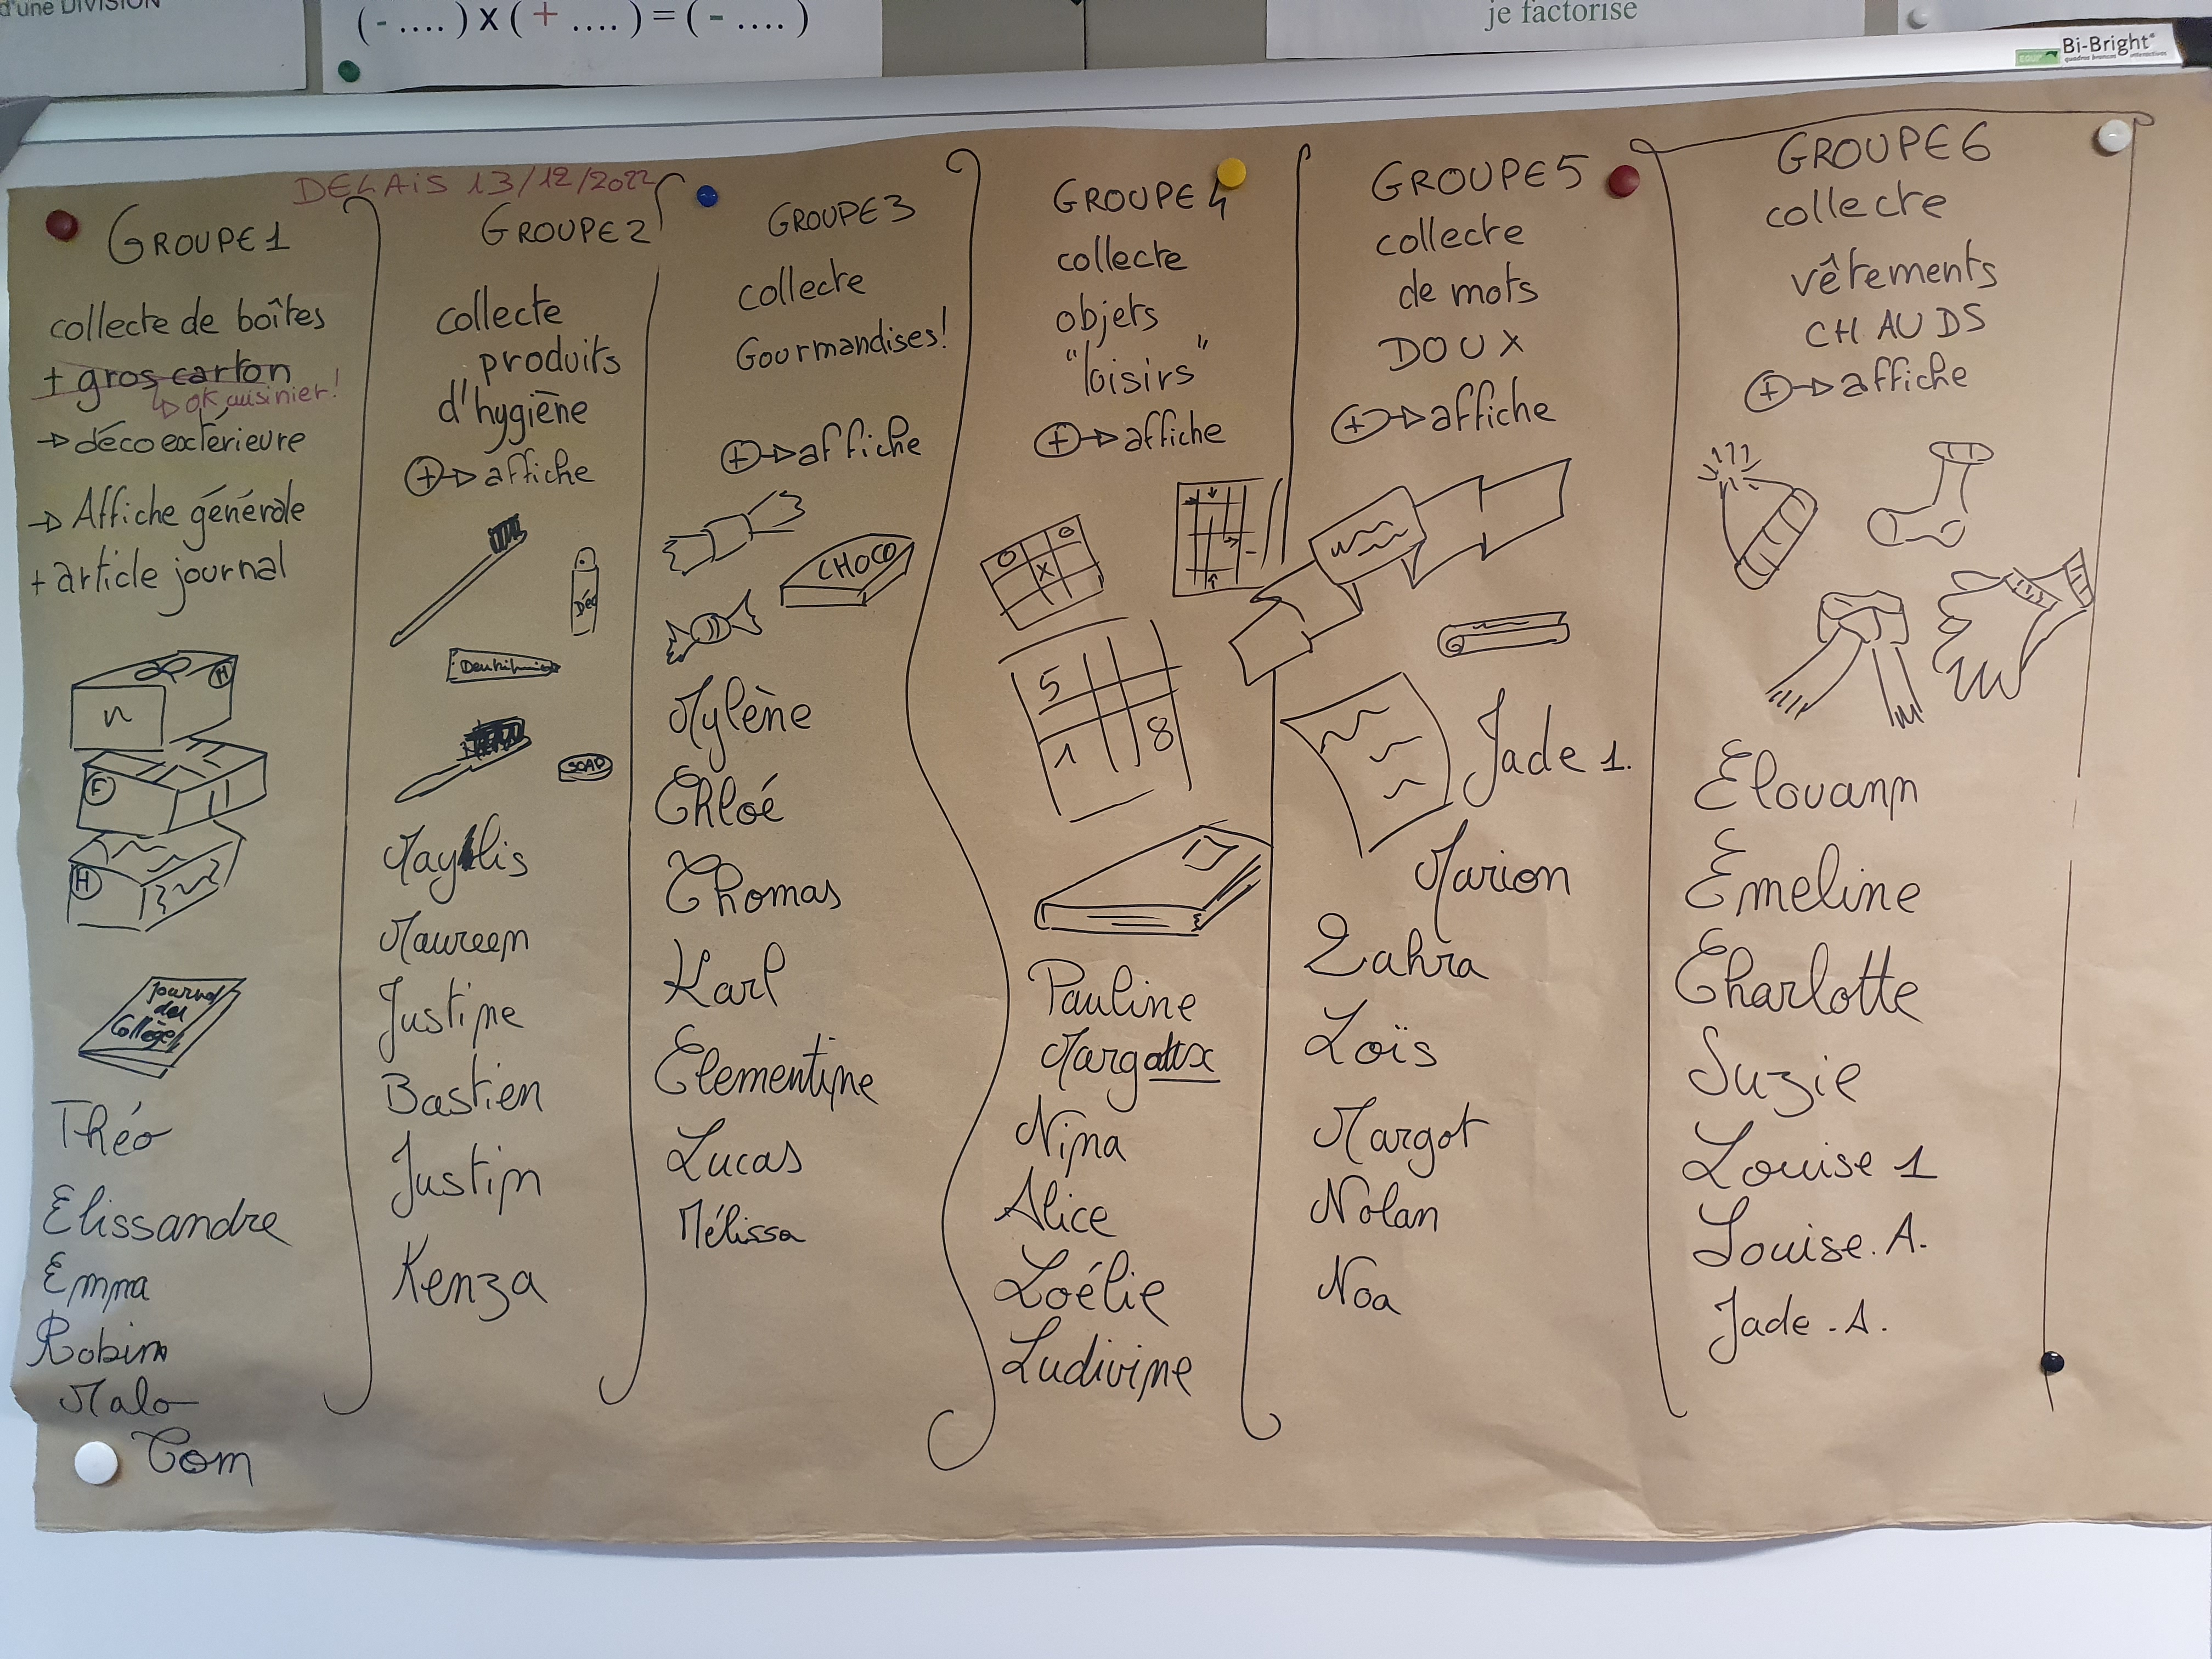 d'une DIVISION
(- ....) x (+ ....) = (- ....)
je factorise
Bi-Bright
DELAIS 13/12/2022
GROUPE 1
collecte de boîtes
+ gros carton
ok cuisinier!
déco extérieure
Affiche générale
+ article journal
H
n
F
H
Journal
des
Collège
Théo
Elissandre
Emma
Robin
Malo
Tom
GROUPE 2
collecte
produits
d'hygiène
+ affiche
Déo
Dentifrice
SOAP
Maylis
Maureen
Justine
Bastien
Justin
Kenza
GROUPE 3
collecte
Gourmandises!
+ affiche
CHOCO
Mylène
Chloé
Thomas
Karl
Clementine
Lucas
Mélissa
GROUPE 4
collecte
objets
"loisirs"
+ affiche
O O
X
5
1 8
Pauline
Margaux
Nina
Alice
Loélie
Ludivine
GROUPE 5
collecte
de mots
DOUX
+ affiche
Jade 1.
Marion
Zahra
Loïs
Margot
Nolan
Noa
GROUPE 6
collecte
vêtements
CHAUDS
+ affiche
Elouann
Emeline
Charlotte
Suzie
Louise 1
Louise. A.
Jade . A.